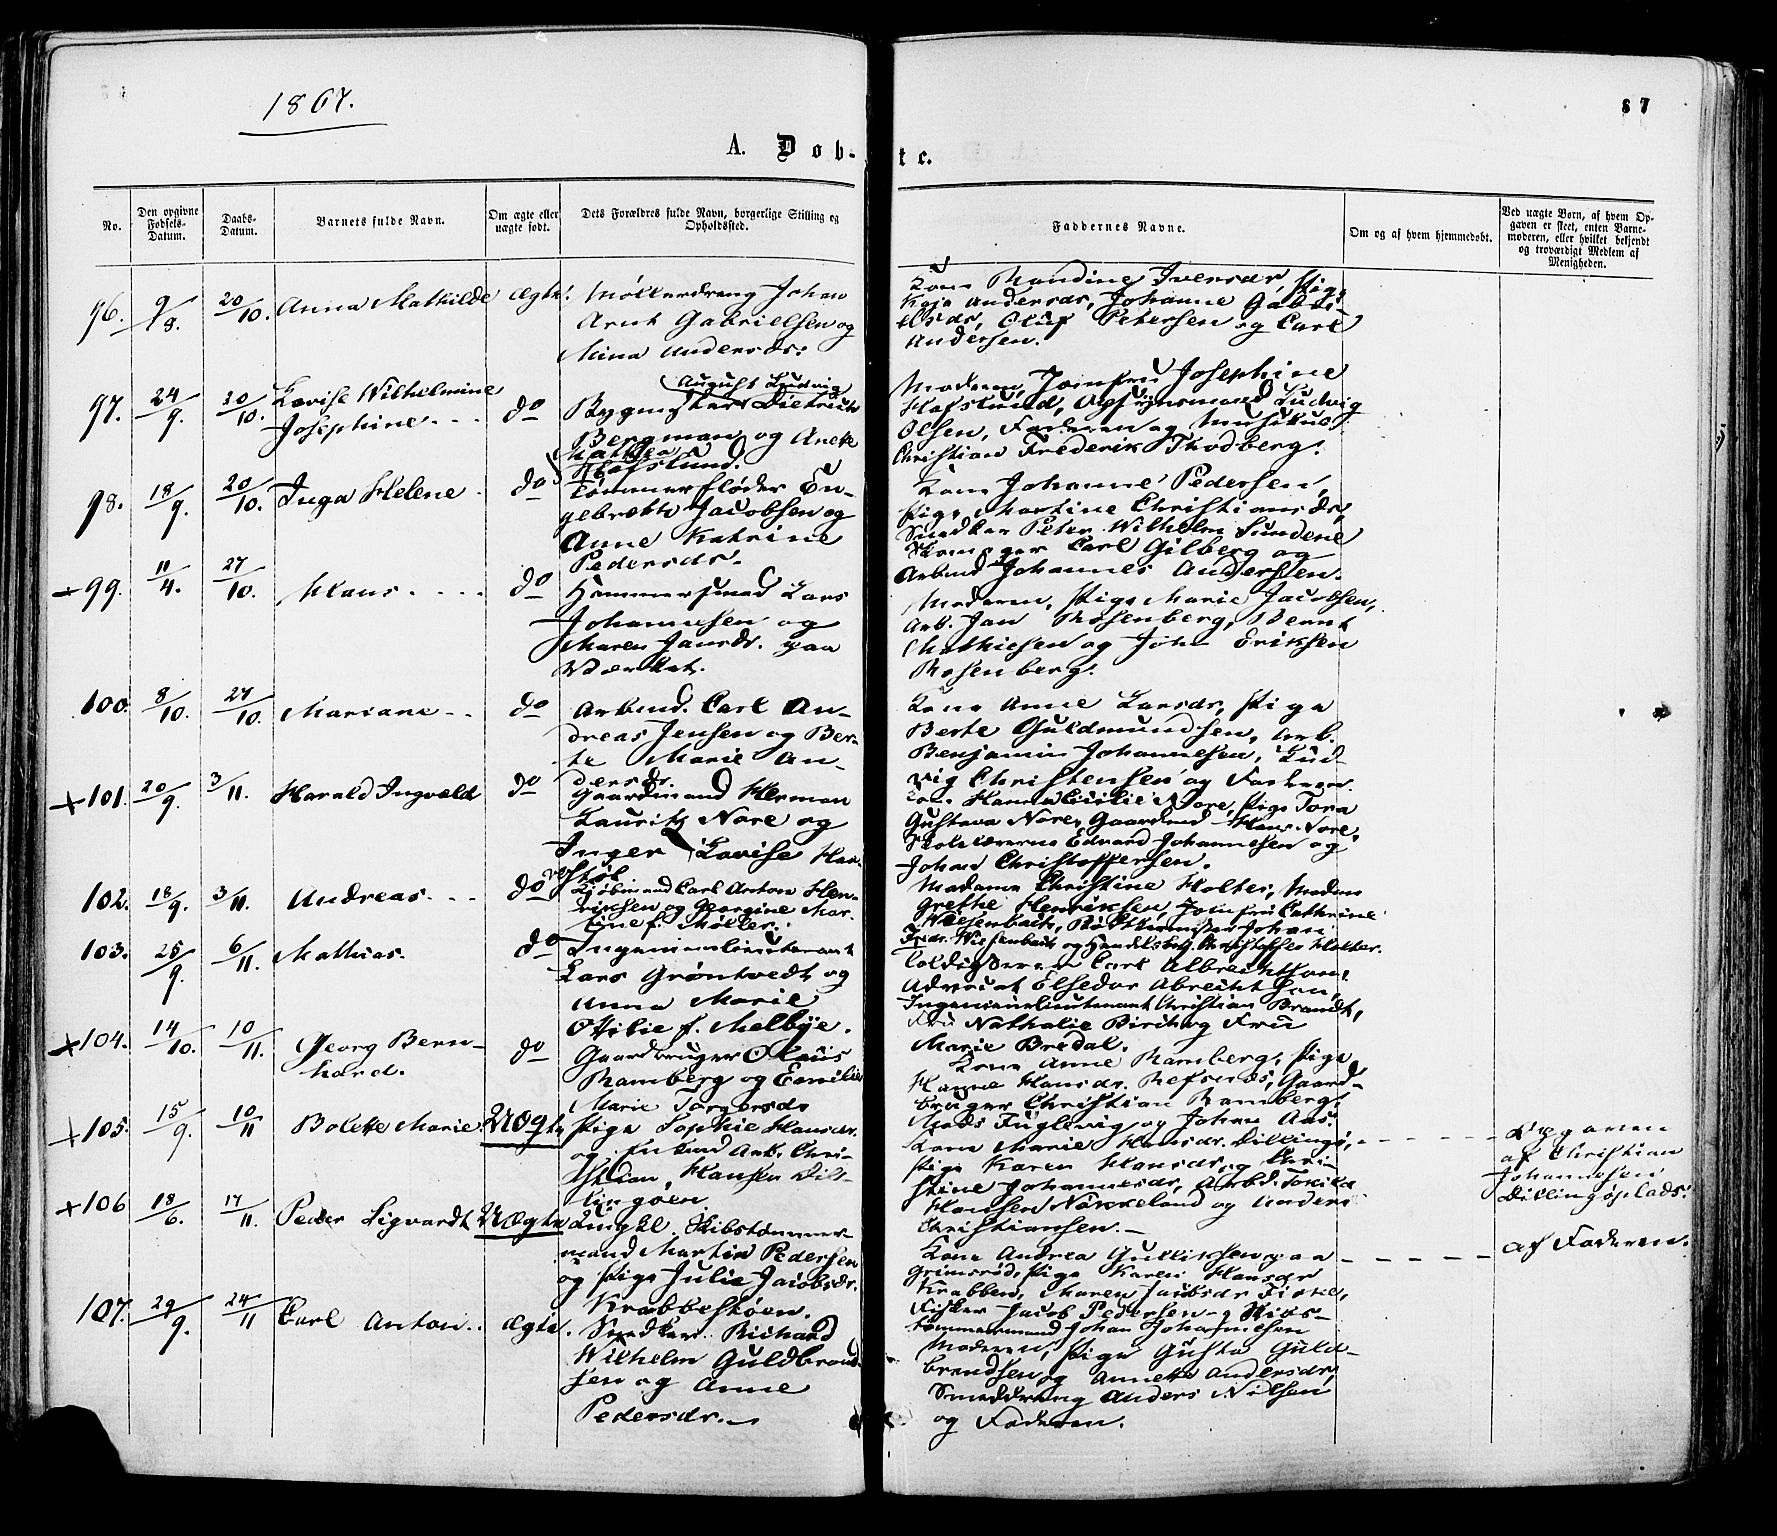 1867.
87
A. Døb-
te.
No.
Den opgivne Fødsels-Datum.
Daabs-Datum.
Barnets fulde Navn.
Om ægte eller uægte født.
Dets Forældres fulde Navn, borgerlige Stilling og Opholdssted.
Faddernes Navne.
Om og af hvem hjemmedøbt.
Ved uægte Børn, af hvem Opgaven er skeet, enten Barnemoderen, eller hvilket bekjendt og troværdigt Medlem af Menigheden.
96. 9/8. 20/10. Anna Mathilde Ægte.
Møllerdreng Johan
Arnt Gabrielsen og
Mina Andersdr:
Kone Iversdr, Pige
Kaja Andersdr, Johanne Gabri-
elsdr, Oluf Petersen og Carl
Andersen.
97. 24/9. 20/10. Lovise Wilhelmine
Josephine do
August Ludvig
Bygmester Dietrich
Bergman og Anette
Mathea
Hafslund.
Moderen, Jomfru Josephine
Hafslund, Opsynsmand Ludvig
Olsen, Faderen og Musikus
Christian Frederik Thodberg.
98. 18/9. 20/10. Inga Helene do
Tømmerfløder En-
gebrekt Jacobsen og
Anne Katrine
Pedersdr.
Kone Johanne Pedersen,
Pige Martine Christiansdr,
Snedker Peter Wilhelm Sundene
Skomager Carl Gilberg og
Arbmd Johannes Andersen.
+ 99. 11/4. 27/10. Hans do
Hammersmed Lars
Johannesen og
Maren Jansdr. paa
Værket.
Moderen, Pige Marie Jacobsen,
Arb. Jan Rosenberg, Bernt
Mathiesen og John Eriksen
Rosenberg.
100. 8/10. 27/10. Mariane do
Arbmd. Carl An-
dreas Jensen og Ber-
te Marie An-
dersdr.
Kone Anne Larsdr, Pige
Berte Guldmundsen, Arb.
Benjamin Johannesen, Lud-
vig Christensen og Faderen.
+ 101. 20/9. 3/11. Harald Ingvald do
Gaardmand Herman
Lauritz Nore og
Inger Lovise Har-
Kone Hanna Cicilie Nore, Pige Tora
Gustava Nore, Gaardmd Hans Nore,
Skolelærerne Edvard Johannesen og
Johan Christoffersen.
102. 18/9. 3/11. Andreas do
Kjøbmand Carl Anton Hen-
riksen og Georgine Mar-
tine f. Møller.
Madame Christine Holter, Madm
Grethe Henriksen, Jomfru Cathrine
Wiesenbach, Johan
Fredr. Wiesenbach og Handelsbetj. Christoffer Holter.
103. 25/9. 6/11. Mathias. do
Ingenieurlieutenant
Lars Grøntvedt og
Anna Marie
Ottilie f. Melbye.
Toldkasserer Carl Albrechtson,
Advocat Elsedor Abrechtson,
Ingenieurlieutenant Christian Brandt,
Fru Nathalie Birch og Fru
Marie Bredal.
+ 104. 14/10. 10/11. Georg Bern-
hard. do
Gaardbruger Olaus
Ramberg og Emilie
Marie Torgersdr
Kone Anne Ramberg, Pige
Hanne Hansdr. Refsnæs, Gaard-
bruger Christian Ramberg,
Mads Fuglevig og Johan Aas.
+ 105. 15/9. 10/11 Bolette Marie. Uægte
Pige Sophie Hansdr.
og Enkemd Arb. Chri-
stian Hansen Dil-
lingøen.
Kone Marie Hansdr. Dillingø,
Pige Karen Hansdr, og Chri-
stine Johannesdr, Arbd.
Hansen Nøkkeland og Anders
Christiansen.
Opgaven
af Christian
Johannesen
Dillingøplads.
+ 106 18/6. 17/11. Peder Sigvardt Uægte
Ungkl. Skibstømmer-
mand Martin Pedersen
og Pige Julie Jacobsdr.
Krabbestøen.
Kone Andrea Gulliksen paa
Grimsrød, Pige Karen Hansdr
Krabben, Maren Jacobsdr Fiske,
Fisker Jacob Pedersen og Skibs-
tømmermand Johan Johannesen
af Faderen.
107. 29/9. 24/11 Carl Anton. Ægte.
Snedker Richard
Wilhelm Guldbrand-
sen og Anne
Pedersdr.
Moderen, Pige Gusta Guld-
brandsen og Annette Andersdr,
Smeddreng Anders Nilsen
og Faderen.